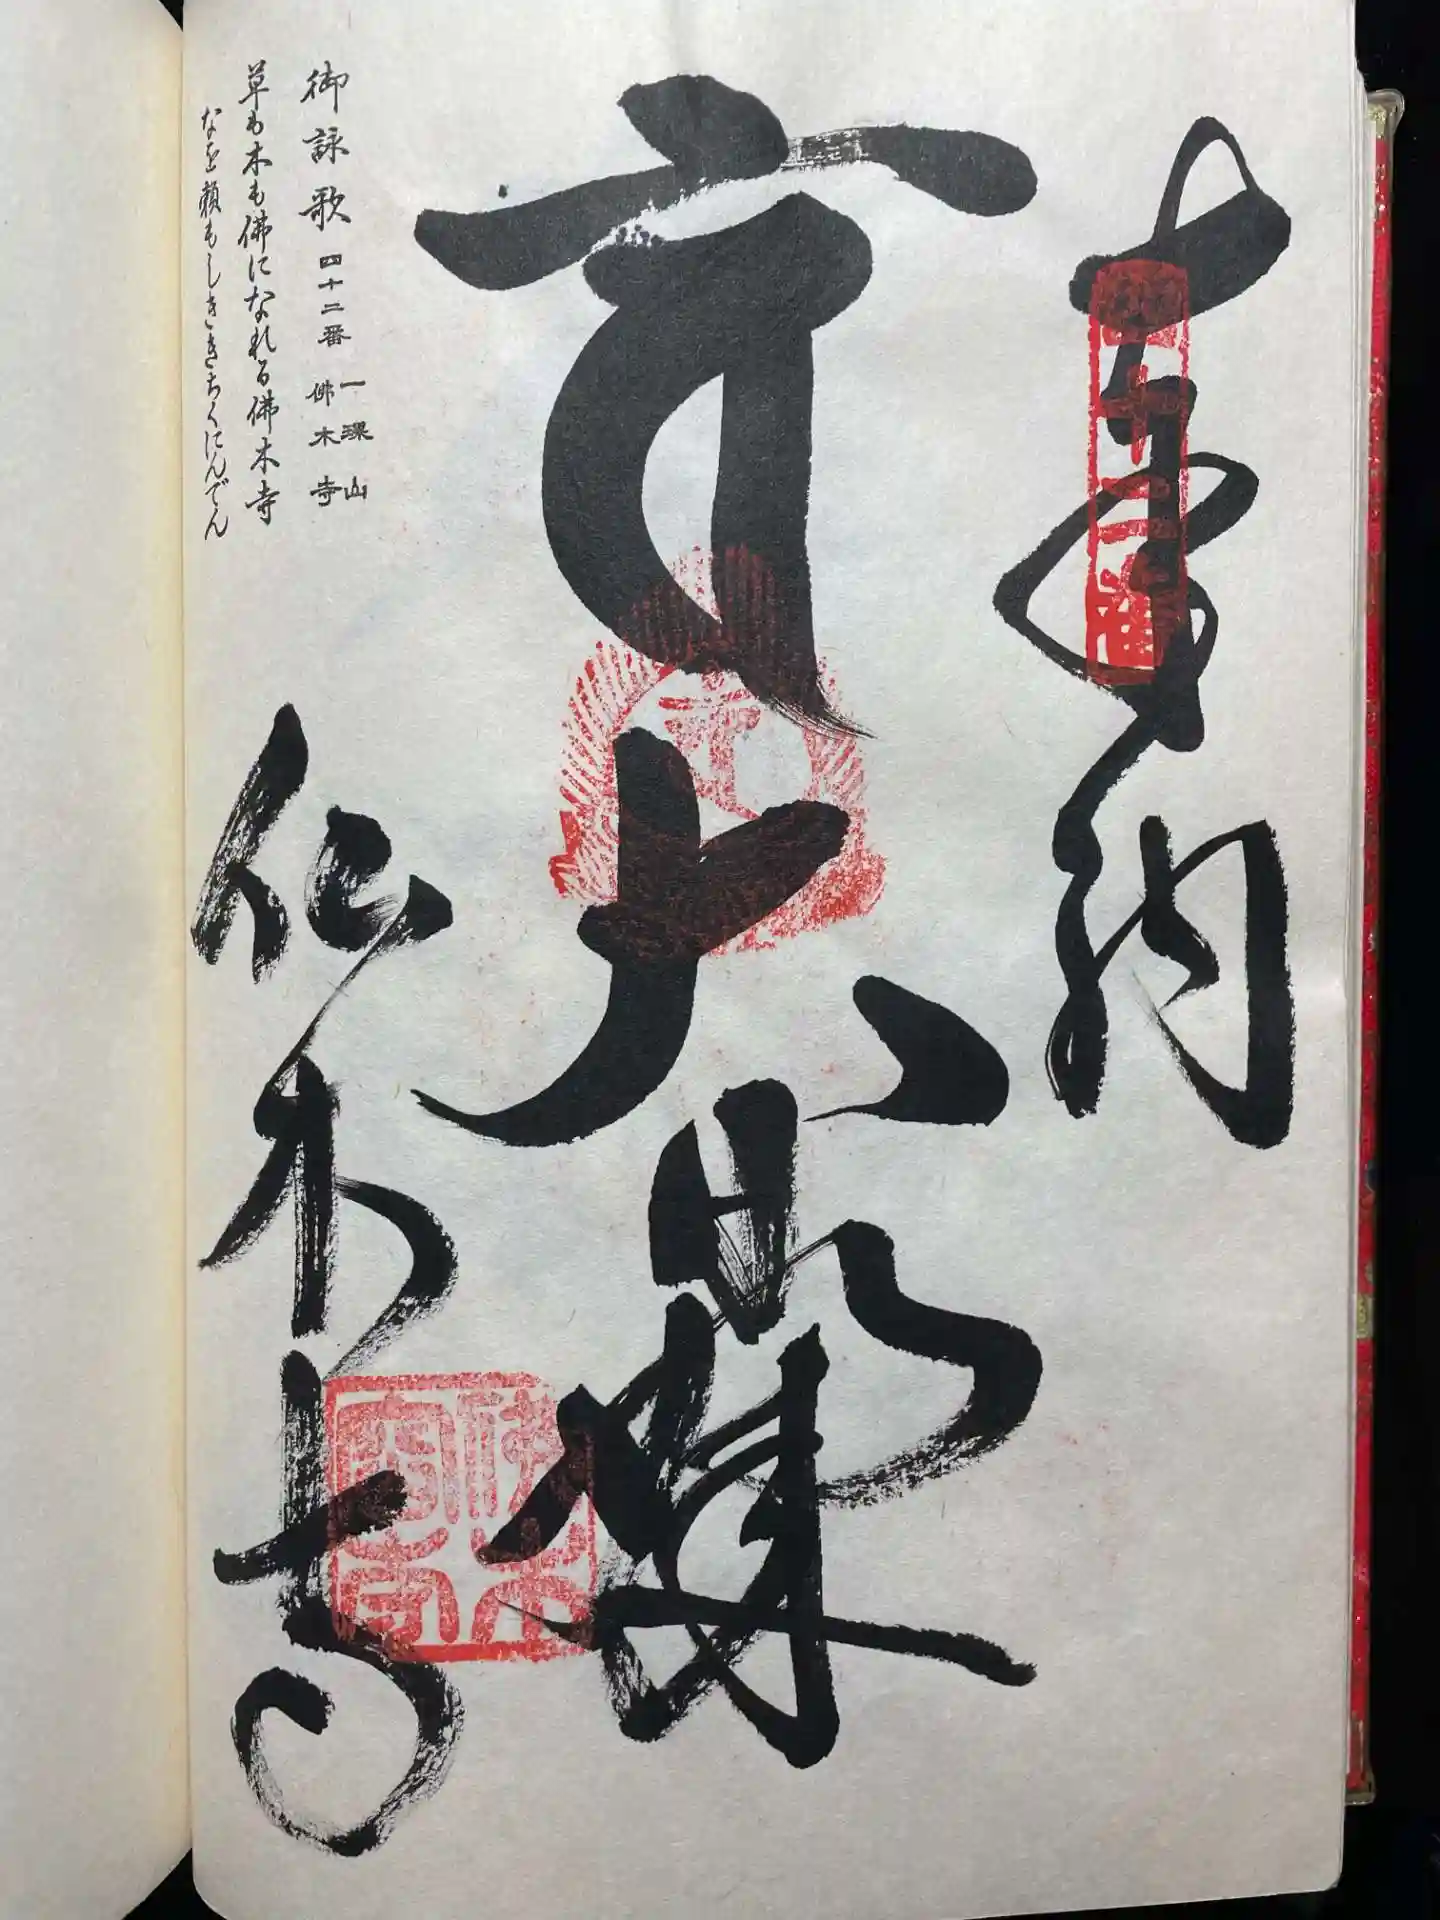 奉納
四十二番
大日
仏木寺
御詠歌 四十二番 一山 佛木寺
草も木も佛になれる佛木寺
なを頼もしききちくにんでん